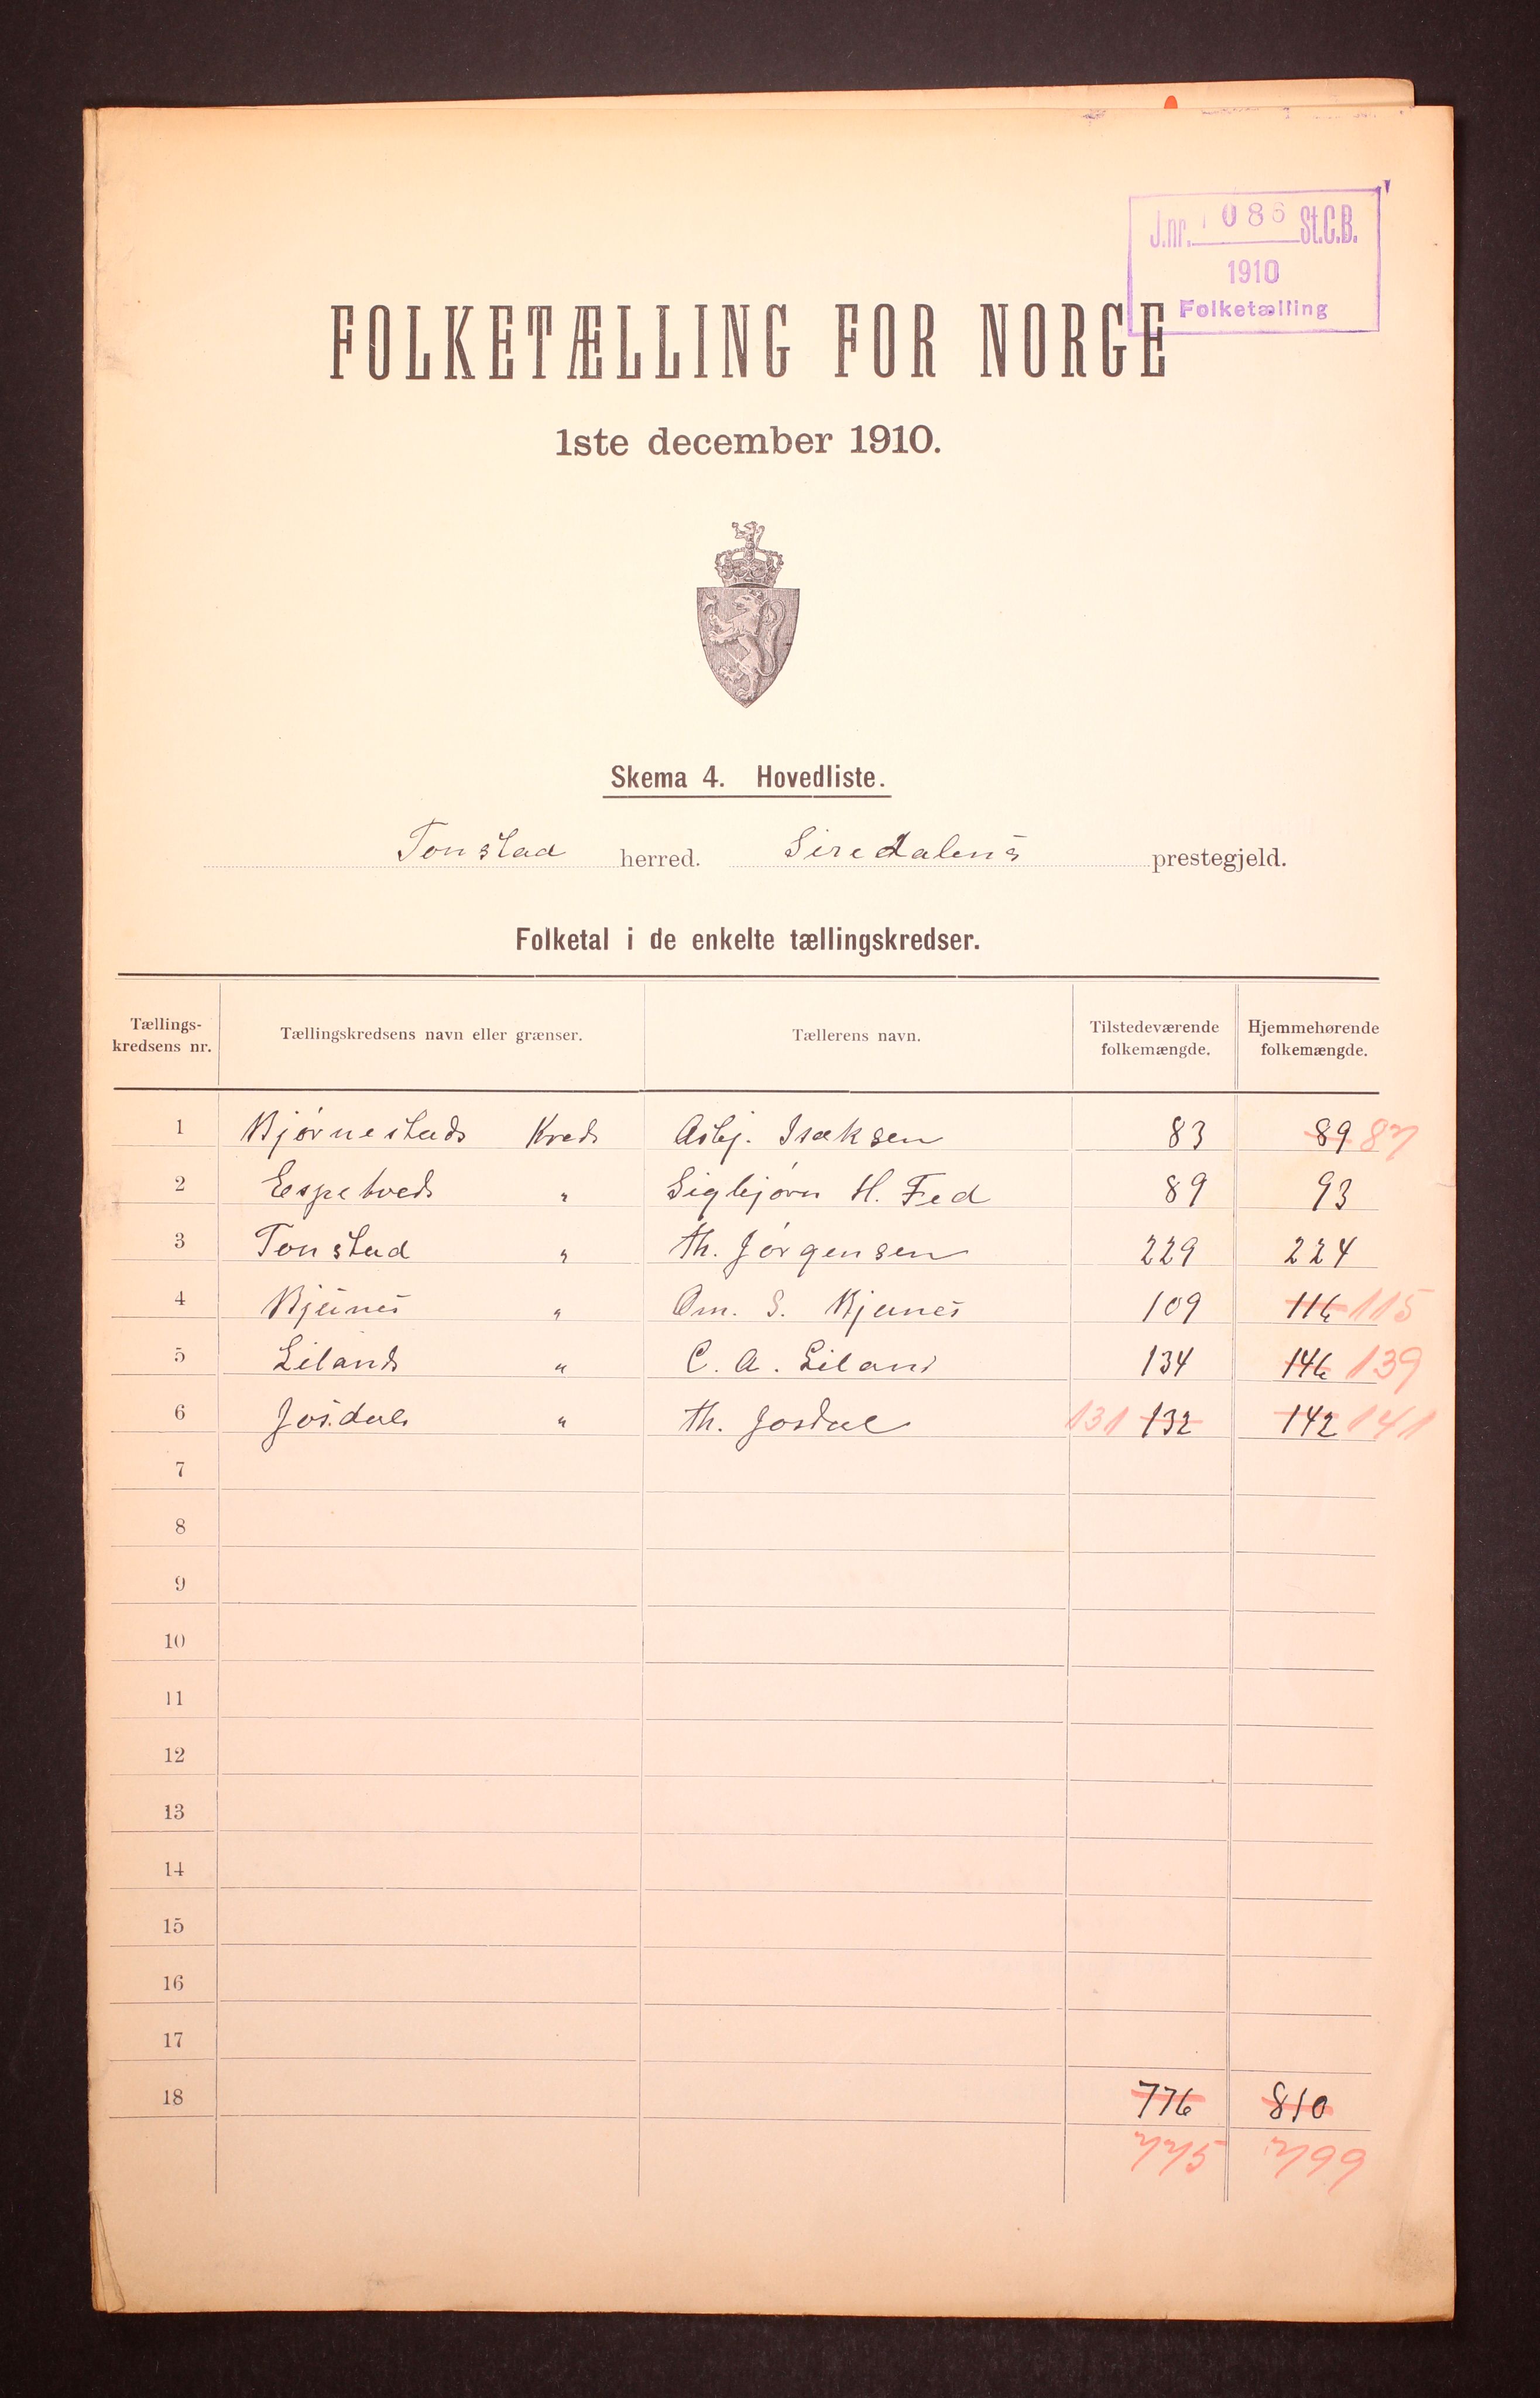 J.nr. 1086 St.C.B.
1910
Folketælling
FOLKETÆLLING FOR NORGE
1ste december 1910.
Skema 4. Hovedliste.
Tonstad herred. Siredalens prestegjeld.
Folketal i de enkelte tællingskredser.
Tællings-kredsens nr. Tællingskredsens navn eller grænser. Tællerens navn. Tilstedeværende folkemængde. Hjemmehørende folkemængde.
1 Bjørnestads Kreds Asbj. Isaksen 83 89 87
2 Espetveds " Sigbjørn H. Fed 89 93
3 Tonstad " Th. Jørgensen 229 224
4 Bjunes " Om. S. Bjunes 109 116 115
5 Lilands " C. A. Liland 134 146 139
6 Josdals " Th. Josdal 131 132 142 141
7
8
9
10
11
12
13
14
15
16
17
18 776 810
775 799